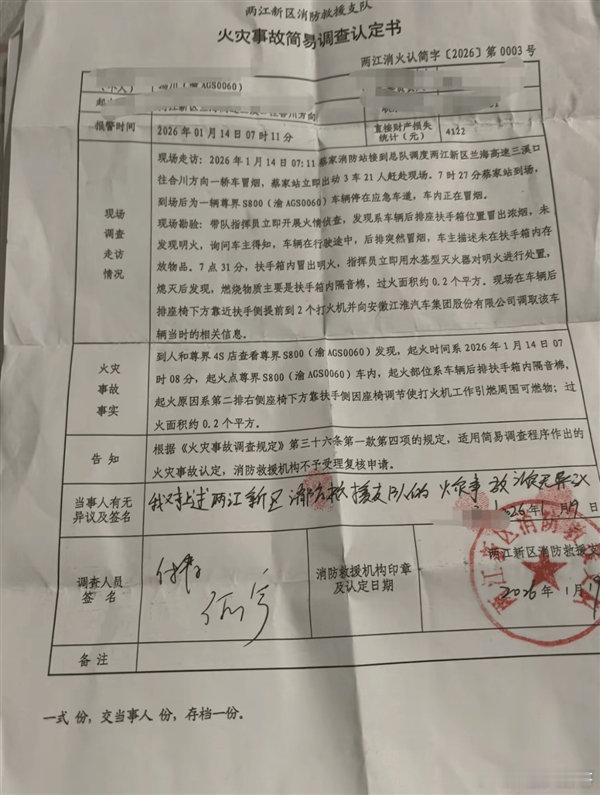 两江新区消防救援支队
火灾事故简易调查认定书
两江消火认简字〔2026〕第 0003 号
(渝 AGS0060)
报警时间
2026 年 01 月 14 日 07 时 11 分
直接财产损失
统计(元)
4122
现场
调查
走访
情况
现场走访:2026 年 1 月 14 日 07:11 蔡家消防站接到总队调度两江新区兰海高速三溪口
往合川方向一轿车冒烟,蔡家站立即出动 3 车 21 人赶赴现场。7 时 27 分蔡家站到场,
到场后为一辆尊界 S800(渝 AGS0060)车辆停在应急车道,车内正在冒烟。
现场勘验:带队指挥员立即开展火情侦查,发现系车辆后排座扶手箱位置冒出浓烟,未
发现明火,询问车主得知,车辆在行驶途中,后排突然冒烟,车主描述未在扶手箱内存
放物品。7 点 31 分,扶手箱内冒出明火,指挥员立即用水基型灭火器对明火进行处置,
熄灭后发现,燃烧物质主要是扶手箱内隔音棉,过火面积约 0.2 个平方。现场在车辆后
排座椅下方靠近扶手侧提前到 2 个打火机并向安徽江淮汽车集团股份有限公司调取该车
辆当时的相关信息。
火灾
事故
事实
到人和尊界 4S 店查看尊界 S800(渝 AGS0060)发现,起火时间系 2026 年 1 月 14 日 07
时 08 分,起火点尊界 S800(渝 AGS0060)车内,起火部位系车辆后排扶手箱内隔音棉,
起火原因系第二排右侧座椅下方靠扶手侧因座椅调节使打火机工作引燃周围可燃物;过
火面积约 0.2 个平方。
告 知
根据《火灾事故调查规定》第三十六条第一款第四项的规定,适用简易调查程序作出的
火灾事故认定,消防救援机构不予受理复核申请。
当事人有无
异议及签名
我对上述两江新区消防救援支队的火灾事故 无异议
2026年1月19日
调查人员
签 名
消防救援机构印章
及认定日期
两江新区消防救援支
2026年1月19
备 注
一式 份,交当事人 份,存档一份。